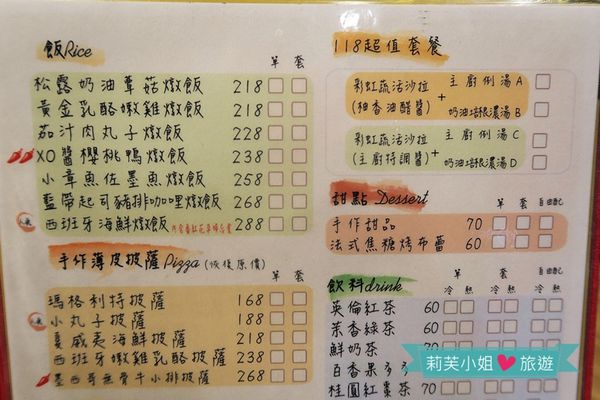 飯Rice
單 套
松露奶油蕈菇燉飯 218
黃金乳酪嫩雞燉飯 218
茄汁肉丸子燉飯 228
XO醬櫻桃鴨燉飯 238
小章魚佐墨魚燉飯 258
藍帶起司豬排咖哩燉飯 268
西班牙海鮮燉飯 288
手作薄皮披薩Pizza (恢復原價)
單 套
瑪格利特披薩 168
小丸子披薩 188
夏威夷海鮮披薩 218
西班牙嫩雞乳酪披薩 238
墨西哥無骨牛小排披薩 268
118超值套餐
彩虹蔬活沙拉 主廚例湯A
(柚香油醋醬) + 奶油培根濃湯B
彩虹蔬活沙拉 主廚例湯C
(主廚特調醬) + 奶油培根濃湯D
甜點 Dessert
單 套 自由配
手作甜品 70
法式焦糖烤布蕾 60
飲料drink
單 套 自由配
冷 熱 冷 熱 冷 熱
英倫紅茶 60
茉香綠茶 60
鮮奶茶 70
百香果多多
桂圓紅棗茶 70
莉芙小姐 旅遊